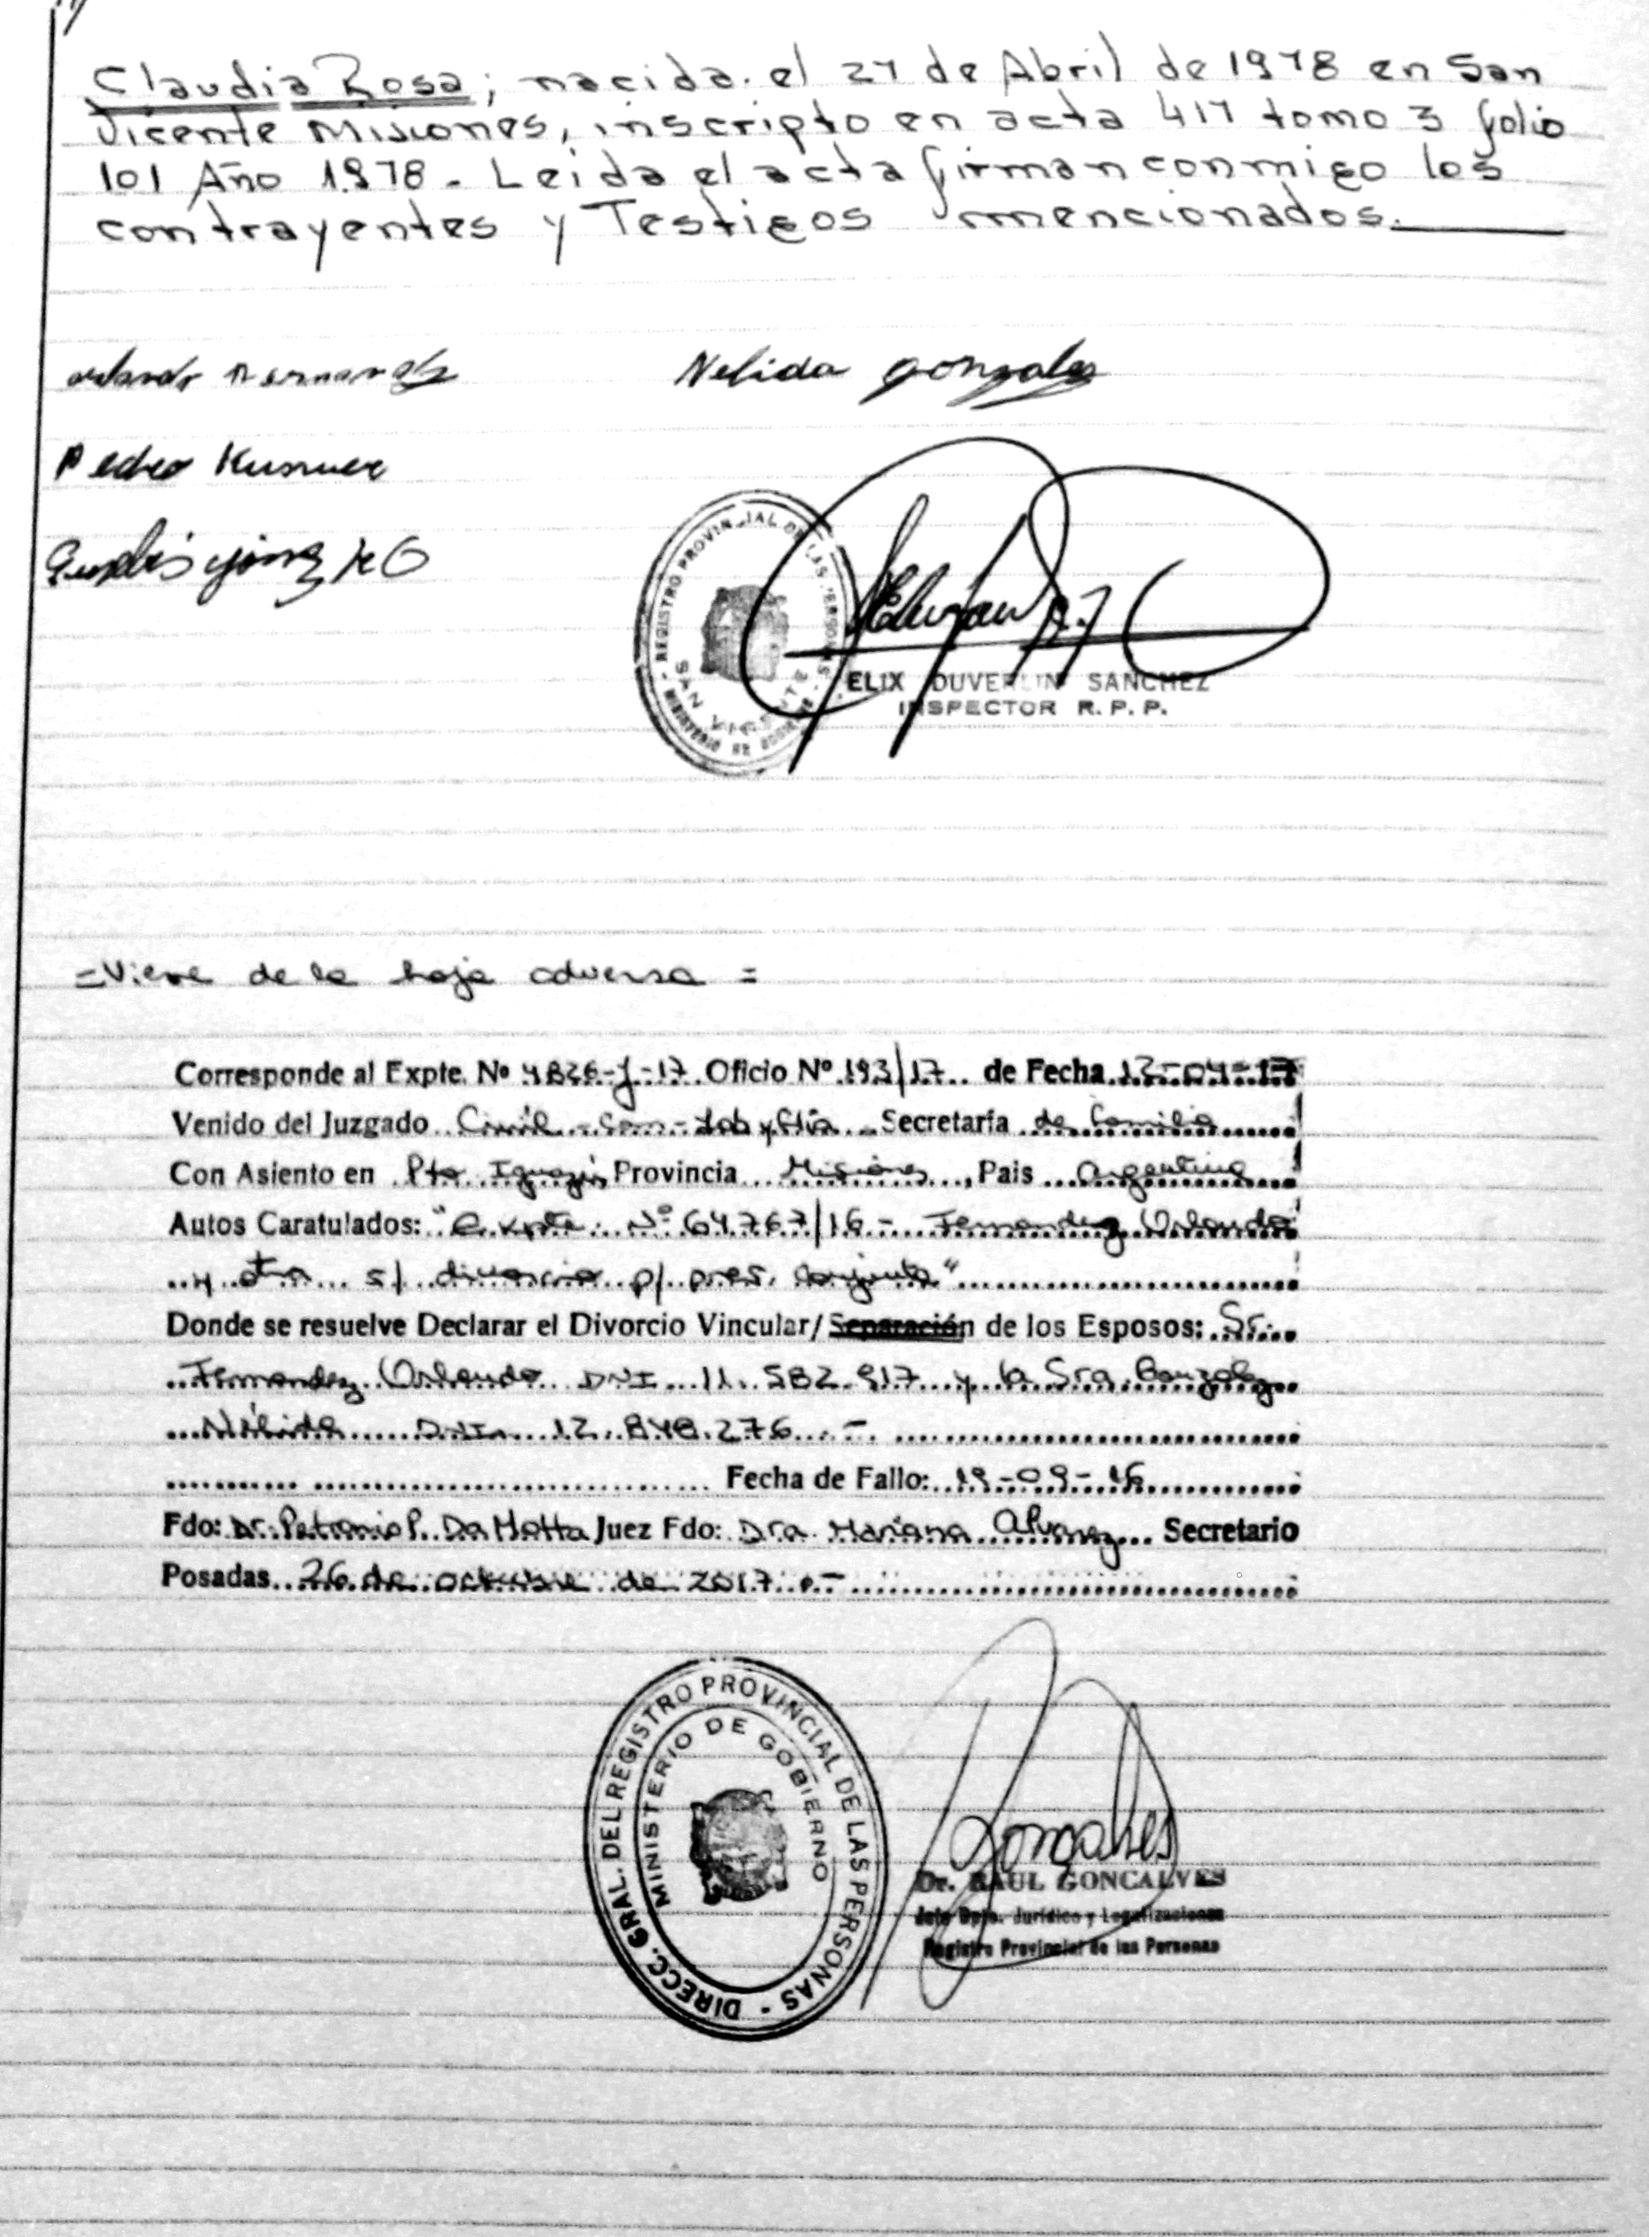 Claudia Rosa; nacida el 27 de Abril de 1978 en San
Vicente Misiones, inscripto en acta 417 tomo 3 folio
101 Año 1978.- Leida el acta firman conmigo los
contrayentes y Testigos mencionados.
Nelida Gonzales
Pedro
REGISTRO PROVINCIAL DE LAS PERSONAS - MINISTERIO DE GOBIERNO -
SAN VICENTE
ELIX DUVERLIN SANCHEZ
INSPECTOR R.P.P.
=Viene de la hoja adversa=
Corresponde al Expte. Nº 4826-J-17 Oficio Nº 193/17 de Fecha 12-04-17
Venido del Juzgado Civil - Com - Lab y Flia Secretaría de Familia
Con Asiento en Pto Iguazú, Provincia Misiones, Pais Argentina
Autos Caratulados: "Expte. Nº 64.767/16 - Fernandez Orlando
y otra s/ divorcio p/ pres. conjunta"
Donde se resuelve Declarar el Divorcio Vincular/Separación de los Esposos: Sr.
Fernandez Orlando DNI 11.582.917 y la Sra Gonzalez
Nélida DNI 12.848.276.-
Fecha de Fallo: 19-09-16
Fdo: Dr. Petronio P. Da Motta Juez Fdo: Dra. Mariana Alvarez Secretario
Posadas 26 de octubre de 2017.-
DIRECC. GRAL. DEL REGISTRO PROVINCIAL DE LAS PERSONAS -
MINISTERIO DE GOBIERNO
Goncalves
Dr. RAUL GONCALVES
Jefe Dpto. Jurídico y Legalizaciones
Registro Provincial de las Personas